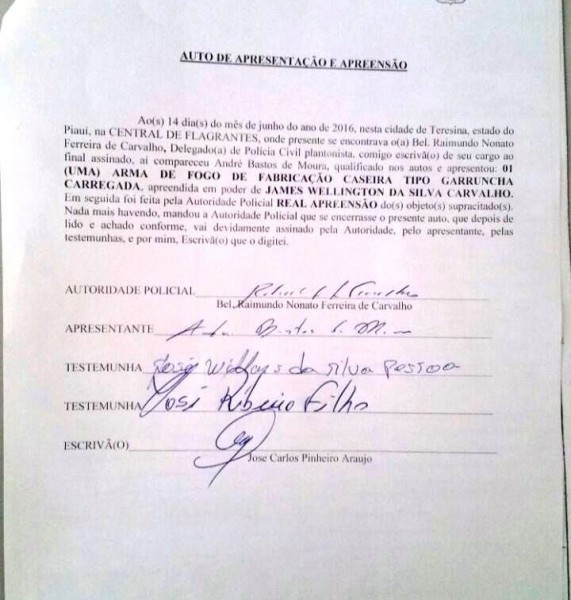 AUTO DE APRESENTAÇÃO E APREENSÃO
Ao(s) 14 dia(s) do mês de junho do ano de 2016, nesta cidade de Teresina, estado do
Piauí, na CENTRAL DE FLAGRANTES, onde presente se encontrava o(a) Bel. Raimundo Nonato
Ferreira de Carvalho, Delegado(a) de Polícia Civil plantonista, comigo escrivã(o) de seu cargo ao
final assinado, aí compareceu André Bastos de Moura, qualificado nos autos e apresentou: 01
(UMA) ARMA DE FOGO DE FABRICAÇÃO CASEIRA TIPO GARRUNCHA
CARREGADA, apreendida em poder de JAMES WELLINGTON DA SILVA CARVALHO.
Em seguida foi feita pela Autoridade Policial REAL APREENSÃO do(s) objeto(s) supracitado(s).
Nada mais havendo, mandou a Autoridade Policial que se encerrasse o presente auto, que depois de
lido e achado conforme, vai devidamente assinado pela Autoridade, pelo apresentante, pelas
testemunhas, e por mim, Escrivã(o) que o digitei.
AUTORIDADE POLICIAL
Bel. Raimundo Nonato Ferreira de Carvalho
APRESENTANTE
TESTEMUNHA da silva Pessoa
TESTEMUNHA José Ribeiro Filho
ESCRIVÃ(O)
Jose Carlos Pinheiro Araujo